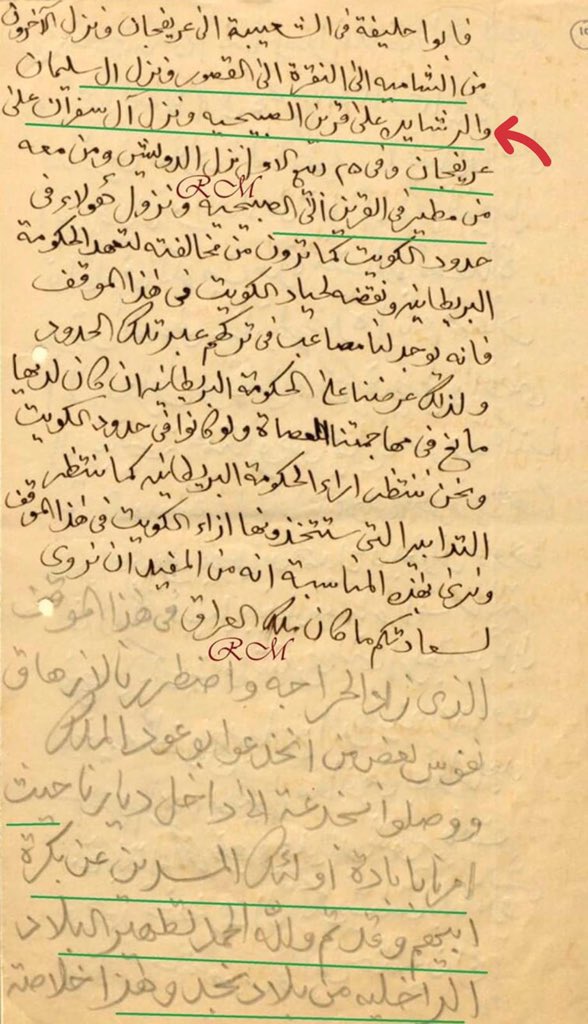 قابوا حليفة في الشعيبة الى عريفجان ونزل الآخرون
من الشاميه الى النقرة الى القصور ونزل ال سليمان
والرشايده على قرين الصبيحيه ونزل آل سفران على
عريفجان وفي ٢٥ ربيع الاول نزل الدويش ومن معه
RM
من مطير في القرين الى الصبيحية ونزول هؤلاء في
حدود الكويت كما ترون من مخالفته لتعهد الحكومة
البريطانيه ونقضه لحياد الكويت في هذا الموقف
فانه يوجد لنا مصاعب في تركهم عبر تلك الحدود
ولذلك عرضنا على الحكومة البريطانيه ان كان لديها
مانع في مهاجمتنا العصاة ولو كانوا في حدود الكويت
ونحن ننتظر اراء الحكومة البريطانيه كما ننتظر
التدابير التي ستتخذونها ازاء الكويت في هذا الموقف
ونرى بهذه المناسبة انه من المفيد ان نروي
لسعادتكم ما كان ملك العراق في هذا الموقف
RM
الذي زاد الحراجه واضطررنا لازهاق
نفوس بعض من انخدعوا بوعود الملك
ووصلوا منخدعة الى داخل ديارنا حيث
امرنا بابادة اولئك المفسدين عن بكرة
ابيهم وقد تم ولله الحمد تطهير البلاد
الداخليه من بلاد نجد وهذا خلاصة